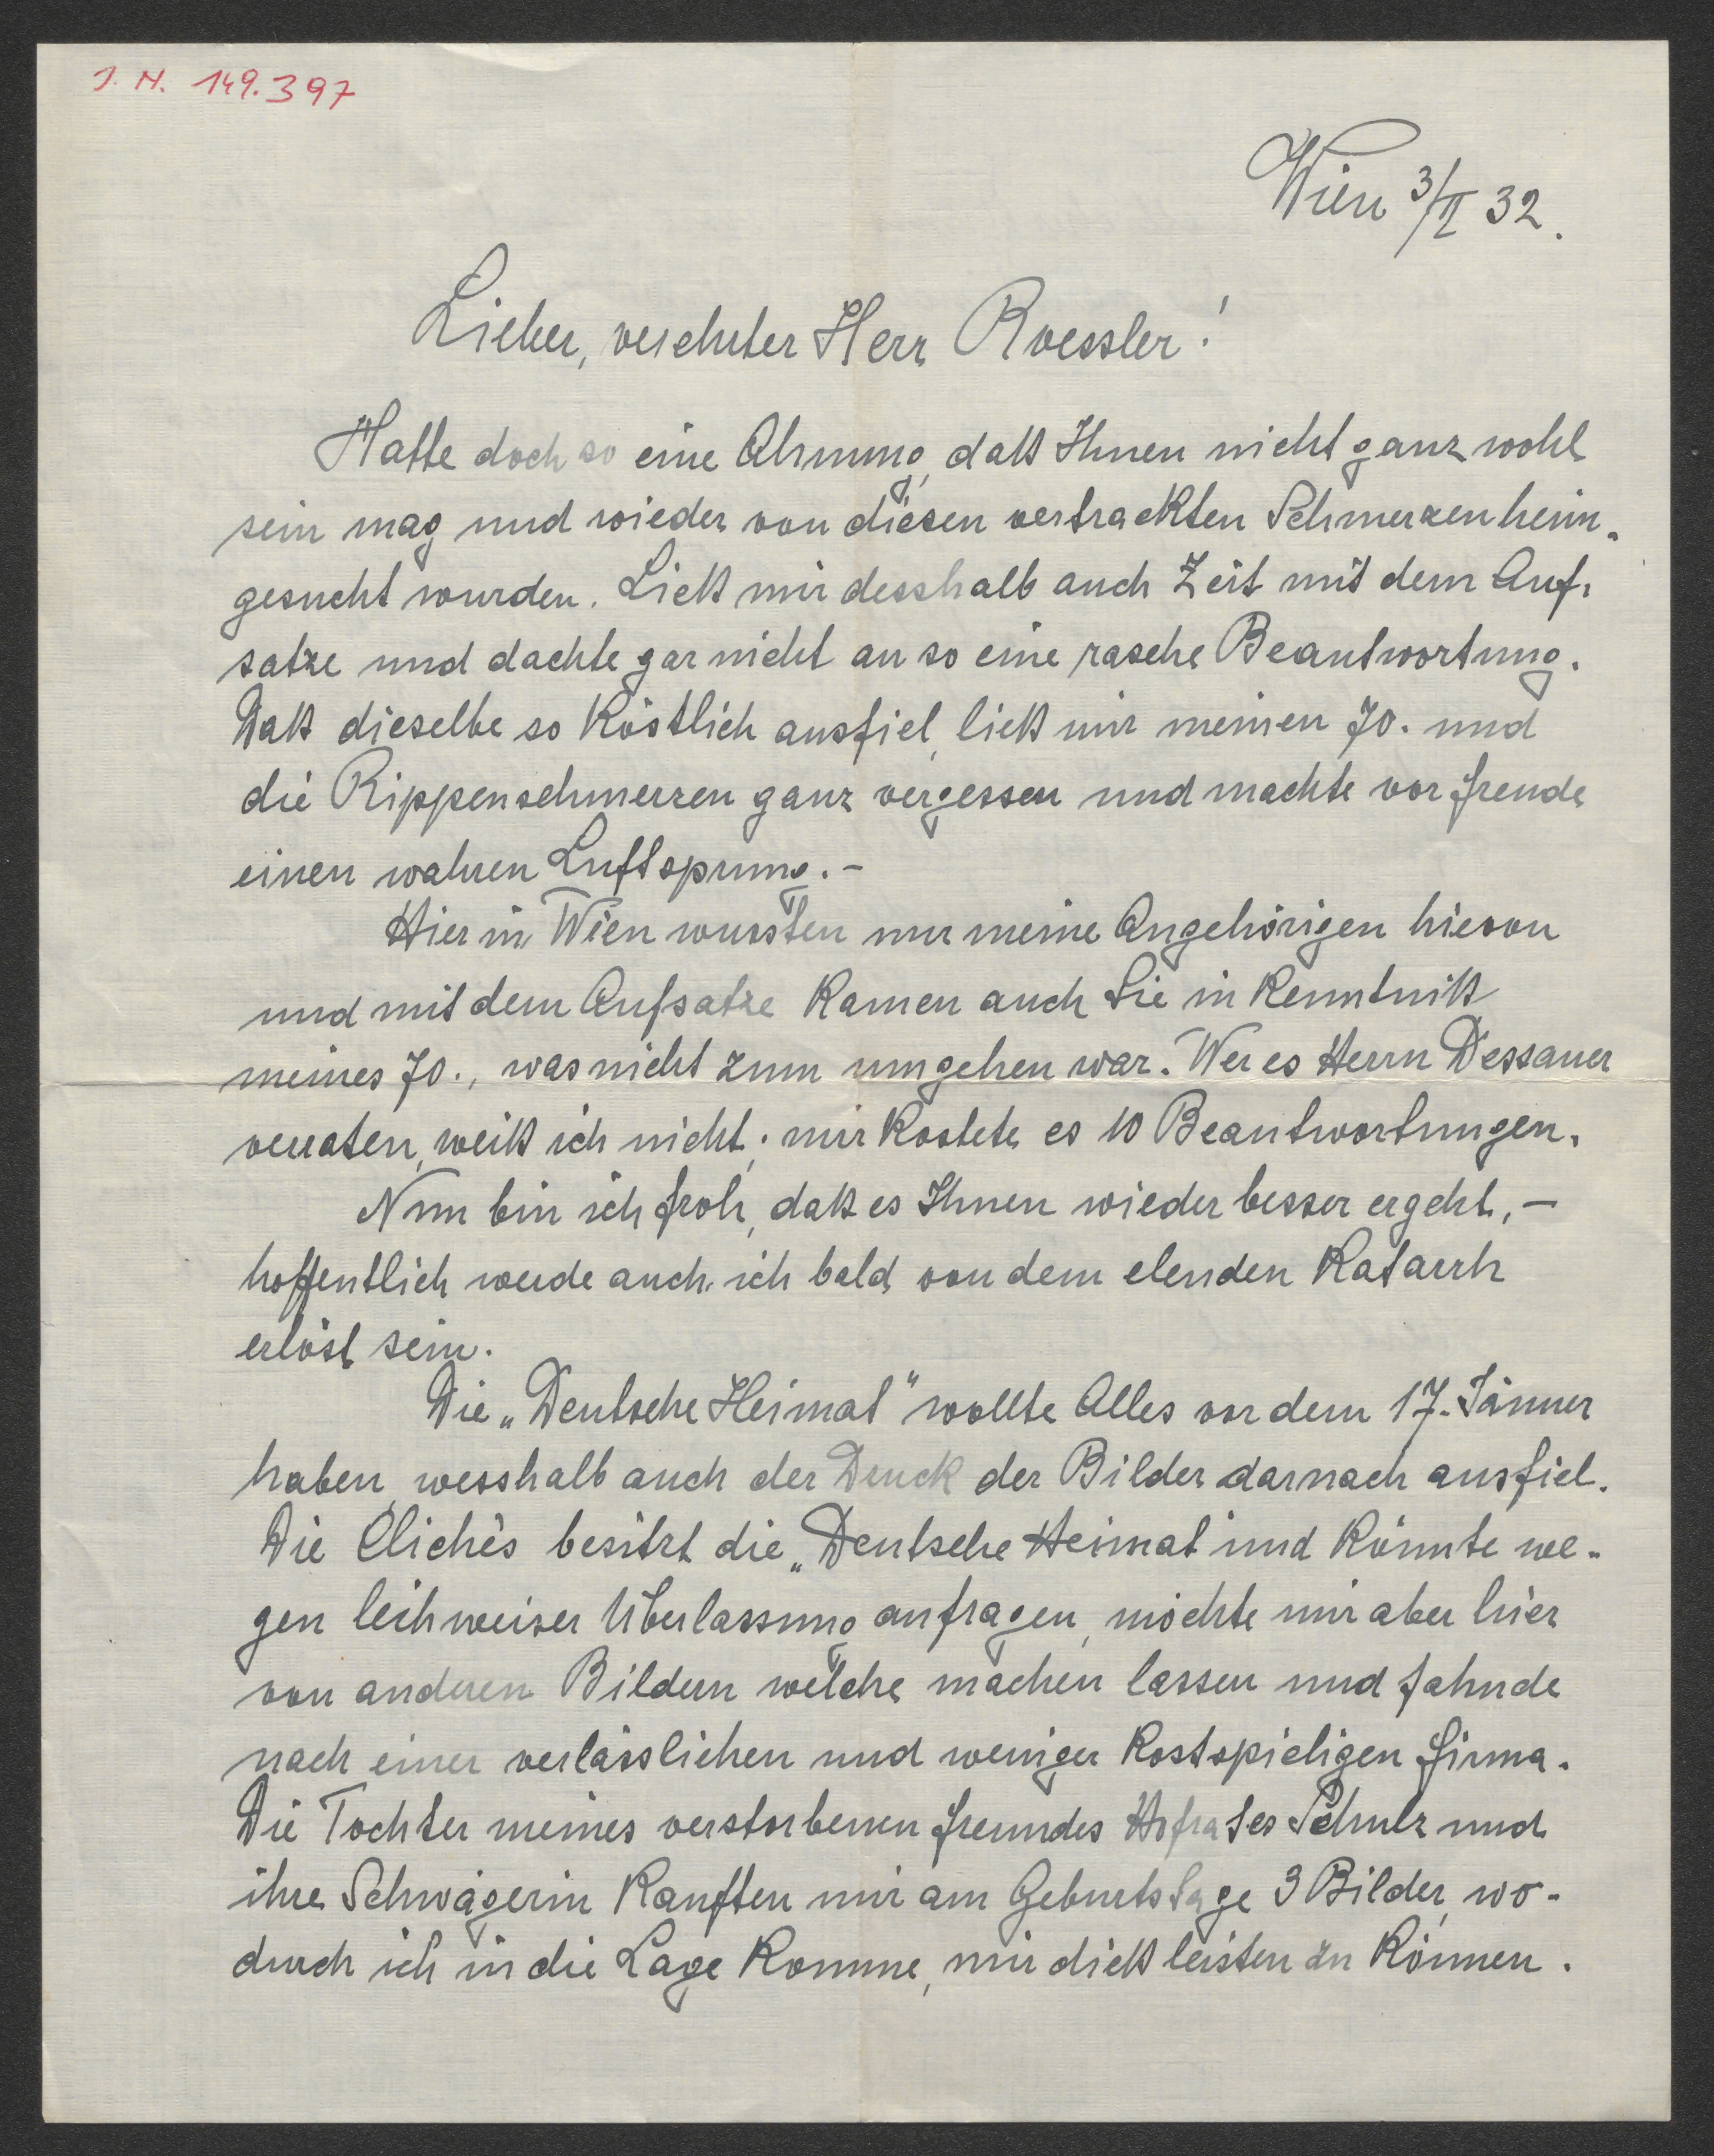 J. N. 149.397
Wien 3/II 32.
Lieber, verehrter Herr Roessler!
Hatte doch so eine Ahnung, daß Ihnen nicht ganz wohl
sein mag und wieder von diesen vertrackten Schmerzen heim-
gesucht wurden. Ließ mir desshalb auch Zeit mit dem Auf-
satze und dachte gar nicht an so eine rasche Beantwortung.
Daß dieselbe so köstlich ausfiel, ließ mir meinen 70. und
die Rippenschmerzen ganz vergessen und machte vor Freude
einen wahren Luftsprung.-
Hier in Wien wussten nur meine Angehörigen hievon
und mit dem Aufsatze kamen auch Sie in Kenntniß
meines 70., was nicht zum umgehen war. Wer es Herrn Dessauer
verraten, weiß ich nicht; mir kostete es 10 Beantwortungen.
Nun bin ich froh, daß es Ihnen wieder besser ergeht, —
hoffentlich werde auch ich bald von dem elenden Katarrh
erlöst sein.
Die „Deutsche Heimat" wollte Alles vor dem 17. Jänner
haben, wesshalb auch der Druck der Bilder darnach ausfiel.
Die Clichès besitzt die „Deutsche Heimat" und könnte we-
gen leihweiser Überlassung anfragen, möchte mir aber hier
von anderen Bildern welche machen lassen und fahnde
nach einer verlässlichen und weniger kostspieligen Firma.
Die Tochter meines verstorbenen Freundes Hofrates Schulz und
ihre Schwägerin kauften mir am Geburtstage 3 Bilder, wo-
durch ich in die Lage komme, mir dieß leisten zu können.